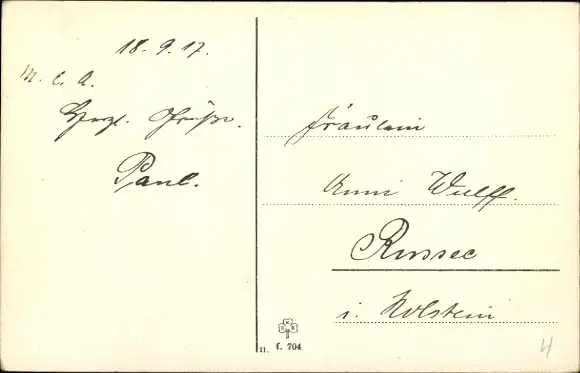 18. 9. 17.
M. l. A.
Herzl. Grüße.
Paul.
Fräulein
Anni Wulff.
Russee
i. Holstein
11. f. 704
4